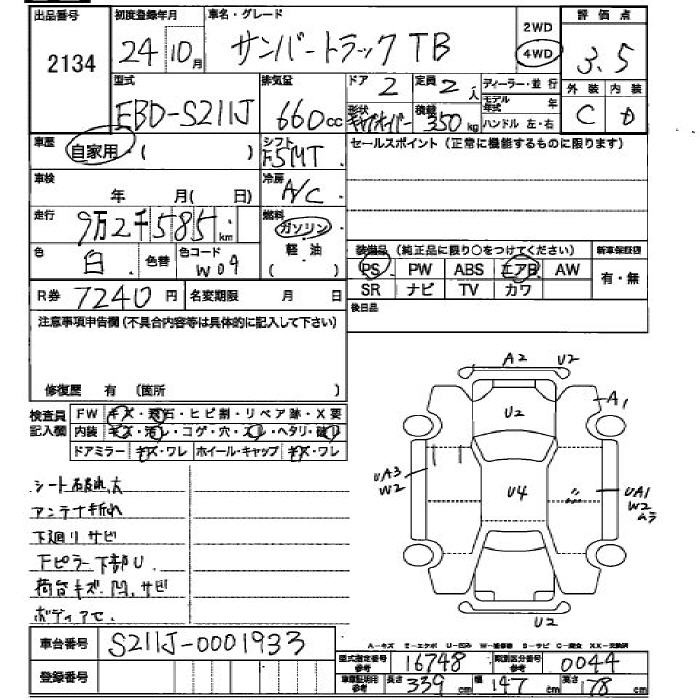 出品番号 初度登録年月 車名・グレード 2WD 評価点
2134 24 10月 サンバートラック TB 4WD 3.5
型式 排気量 ドア 2 定員 2人 ディーラー・並行 外装 内装
EBD-S211J 660cc 形状 キャブオーバー 積載 350kg モデル年式 年 C D
ハンドル 左・右
車歴 自家用・( ) シフト F5MT セールスポイント(正常に機能するものに限ります)
車検 年 月( 日) 冷房 A/C
走行 9万2千585km 燃料 ガソリン
軽油
( )
色 白 色替 色コード W09
装備品(純正品に限り○をつけてください) 新車保証書
PS PW ABS エアB AW 有・無
SR ナビ TV カワ
R券 7240円 名変期限 月 日 後日品
注意事項申告欄(不具合内容等は具体的に記入して下さい)
修復歴 有 (箇所 )
検査員記入欄 FW キズ・飛石・ヒビ割・リペア跡・X要
内装 キズ・汚レ・コゲ・穴・スレ・ヘタリ・破レ
ドアミラー キズ・ワレ ホイール・キャップ キズ・ワレ
A2 U2
A1
U2
UA3
W2
U4
UA1
W2
ムラ
U2
アンテナ折れ
下廻リサビ
下ピラー下部U
荷台キズ.凹.サビ
車台番号 S211J-0001933
A-キズ E-エクボ U-凹み W-補修跡 S-サビ C-腐食 XX-交換済
登録番号
型式指定番号参考 16748 類別区分番号参考 0044
車庫証明用参考 長さ 339cm 幅 147cm 高さ 178cm